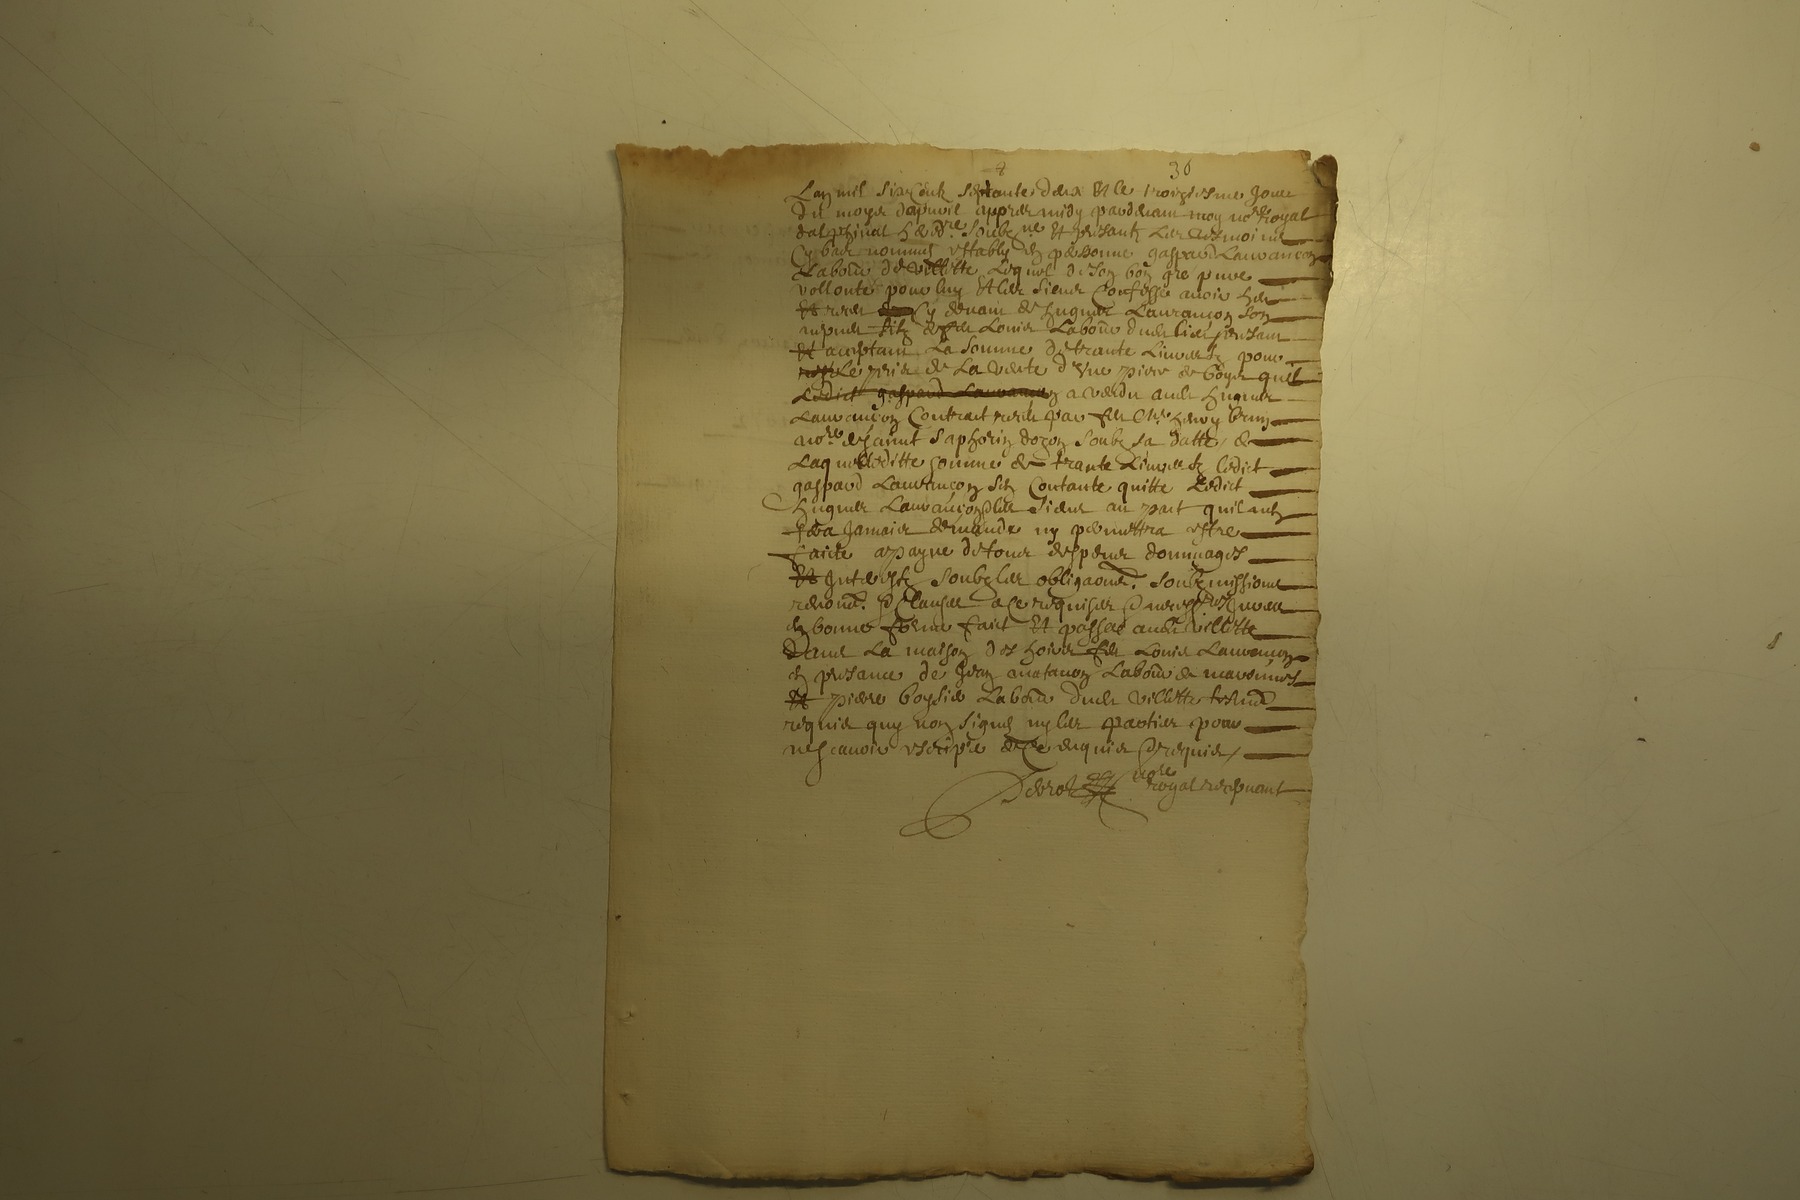 8 30
Lan mil six Centz septante deux Et le troiziesme Jour
du moys dapvril appres midy pardevant moy nore Royal
dalphinal soubzne Et presantz Les tesmoins
Cy bas nommes estably En personne gaspard Lauvançon
Labour de Villette Lequel de son bon gre pure
vollonte pour luy Et les siens Confesse avoir heu
Et receu Cy devant de hugues Lauvançon son
nepveu filz de feu Louis Labour dudt lieu presant
Et acceptant La somme de trante Livres pour
Le prix de La vante d'Une piece de boys quil
Ledict gaspard Lauvançon a vendu audt hugues
Lauvançon Contract receu par feu Me
nore de sainct saphorin dozon soubz sa datte de
Laquelleditte somme de trante Livres ledict
gaspard Lauvançon sen Contante quitte Ledict
hugues Lauvançon les siens au pact quil nen
fera Jamais demande ny permettra estre
faicte a payne de tous despens dommages
Et Interestz soubz les obligaons soubzmissions
renont clauses a ce requises
En bonne forme faict Et passé audt Villette
dans La maison des hoirs feu Louis Lauvançon
En presance de Jean Labour de
Et piere Labour dudt Villette tesmoins
requis quy non signé ny les parties pour
ne scavoir escripre de Ce enquis Et requis
nore
royal recepvant